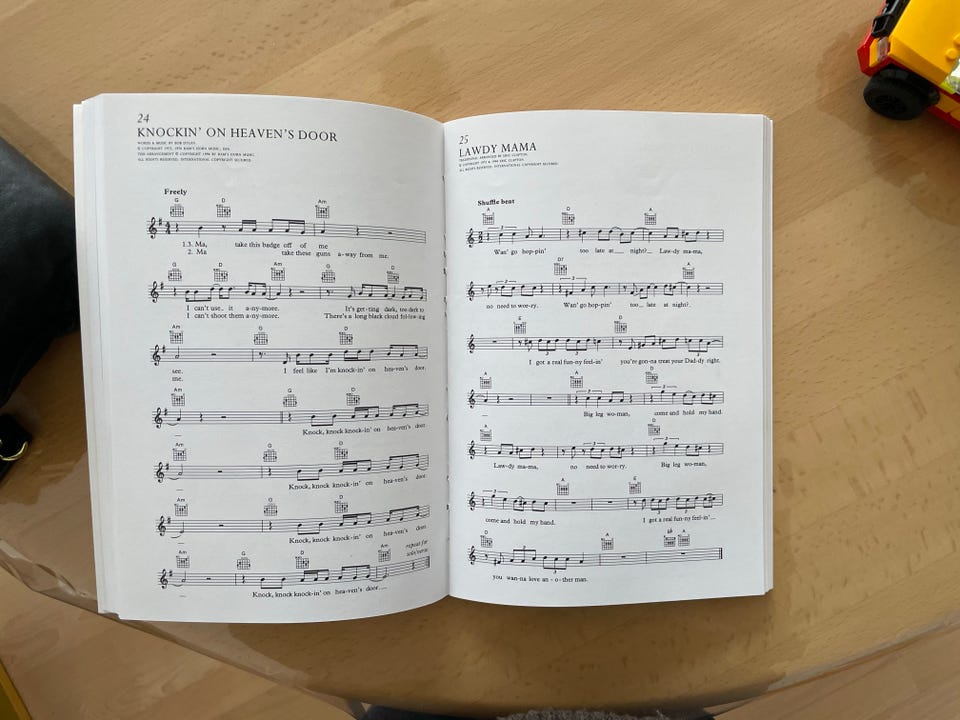 24
KNOCKIN' ON HEAVEN'S DOOR
WORDS & MUSIC BY BOB DYLAN.
© COPYRIGHT 1973, 1974 RAM'S HORN MUSIC, USA.
THIS ARRANGEMENT © COPYRIGHT 1994 BY RAM'S HORN MUSIC.
ALL RIGHTS RESERVED. INTERNATIONAL COPYRIGHT SECURED.
Freely
G D Am
1.3. Ma, take this badge off of me
2. Ma take these guns a-way from me.
G D Am G D
I can't use it a-ny-more. It's get-ting dark, too dark to
I can't shoot them a-ny-more. There's a long black cloud fol-low-ing
Am G D
see. I feel like I'm knock-in' on hea-ven's door.
me.
Am G D
Knock, knock knock-in' on hea-ven's door.
Am G D
Knock, knock knock-in' on hea-ven's door.
Am G D
Knock, knock knock-in' on hea-ven's door.
Am G D Am
repeat for
solo/verse
Knock, knock knock-in' on hea-ven's door....
25
LAWDY MAMA
TRADITIONAL ARRANGED BY ERIC CLAPTON.
© COPYRIGHT 1970 & 1994 ERIC CLAPTON.
ALL RIGHTS RESERVED. INTERNATIONAL COPYRIGHT SECURED.
Shuffle beat
A D A
Wan' go hop-pin' too late at night? Law-dy ma-ma,
D7 A
no need to wor-ry. Wan' go hop-pin' too late at night?
E D
I got a real fun-ny feel-in' you're gon-na treat your Dad-dy right.
A A D
Big leg wo-man, come and hold my hand.
A D
Law-dy ma-ma, no need to wor-ry. Big leg wo-man,
A E
come and hold my hand. I got a real fun-ny feel-in'
D A A
you wan-na love an-o-ther man.